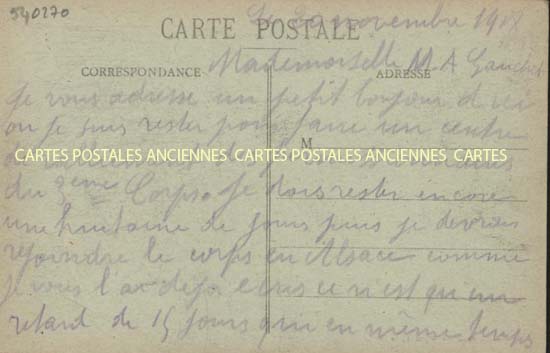 540270
le 29 novembre 1918
CARTE POSTALE
Mademoiselle M A Gauchet
CORRESPONDANCE
ADRESSE
je vous adresse un petit bonjour d ici
ou je suis rester pour faire un centre
M
CARTES POSTALES ANCIENNES CARTES POSTALES ANCIENNES CARTES
du 8eme Corps je dois rester encore
une huitaine de jours puis je devrais
rejoindre le corps en Alsace comme
je vous l'ai deja ecris ce n'est qu'un
retard de 15 jours qui en même temps